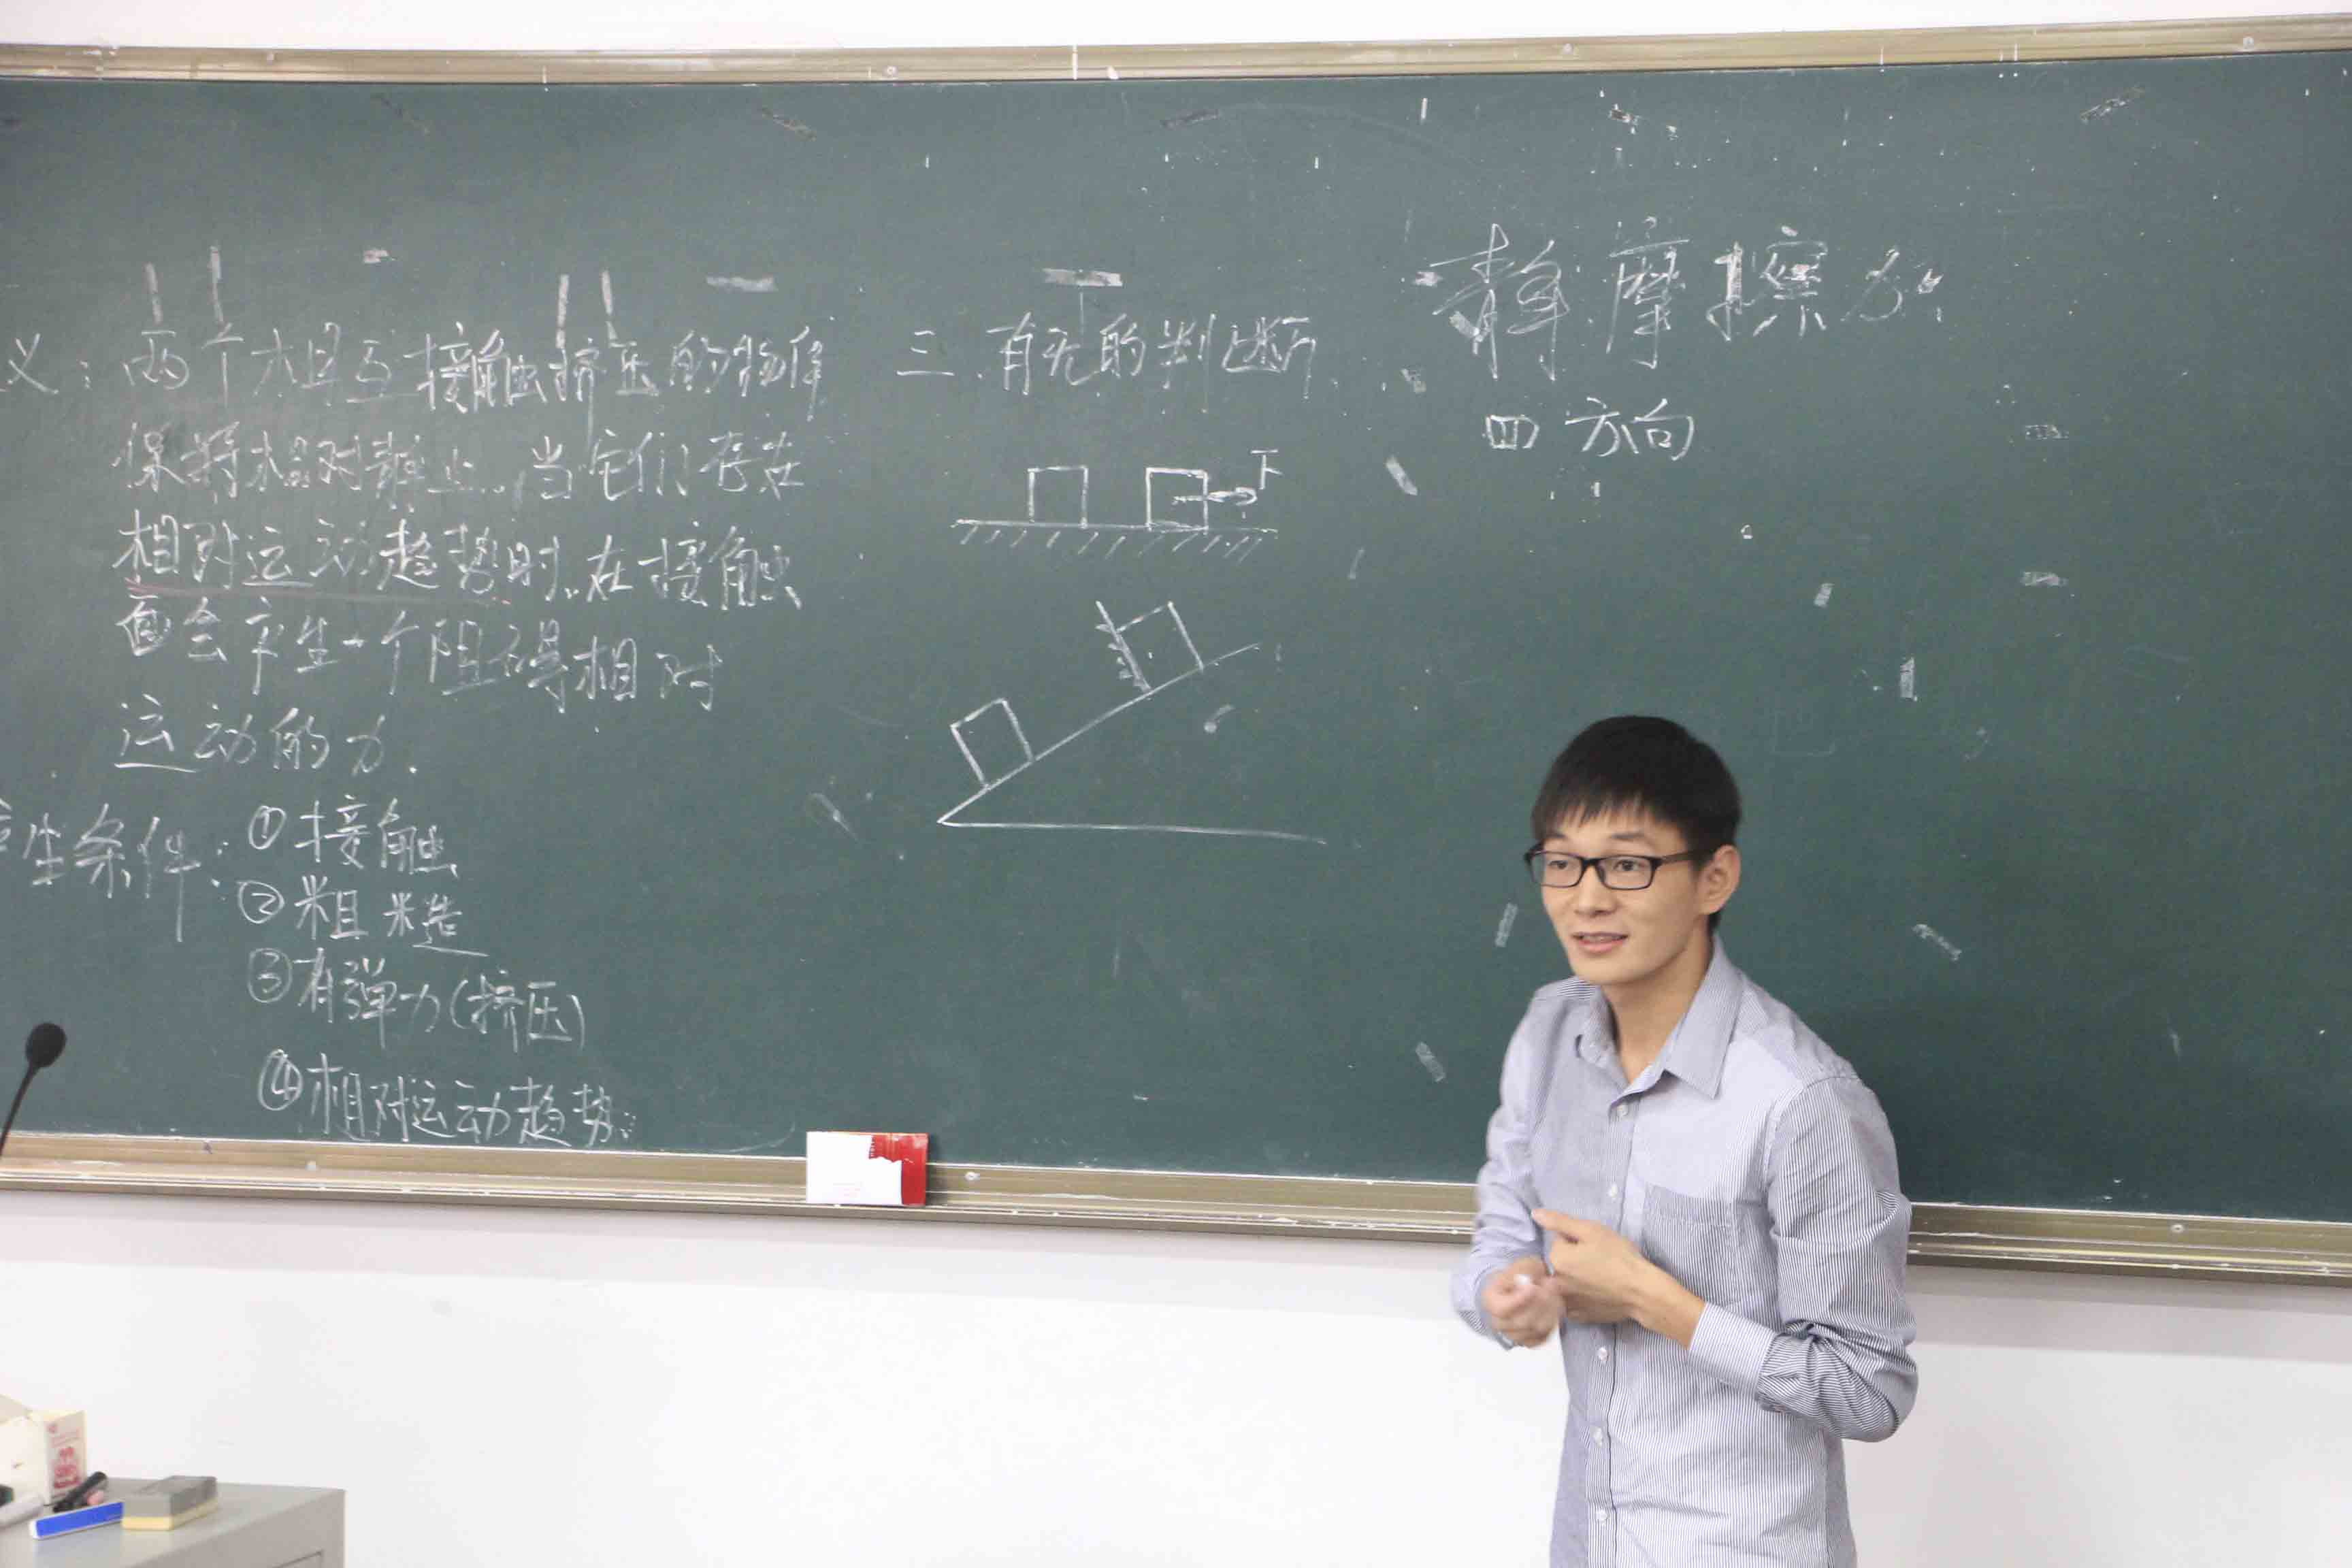 静摩擦力
义：两个相互接触挤压的物体
保持相对静止，当它们存在
相对运动趋势时，在接触
面会产生一个阻碍相对
运动的力.
生条件：①接触
②粗糙
③有弹力(挤压)
④相对运动趋势.
三.有无的判断.
F
四 方向